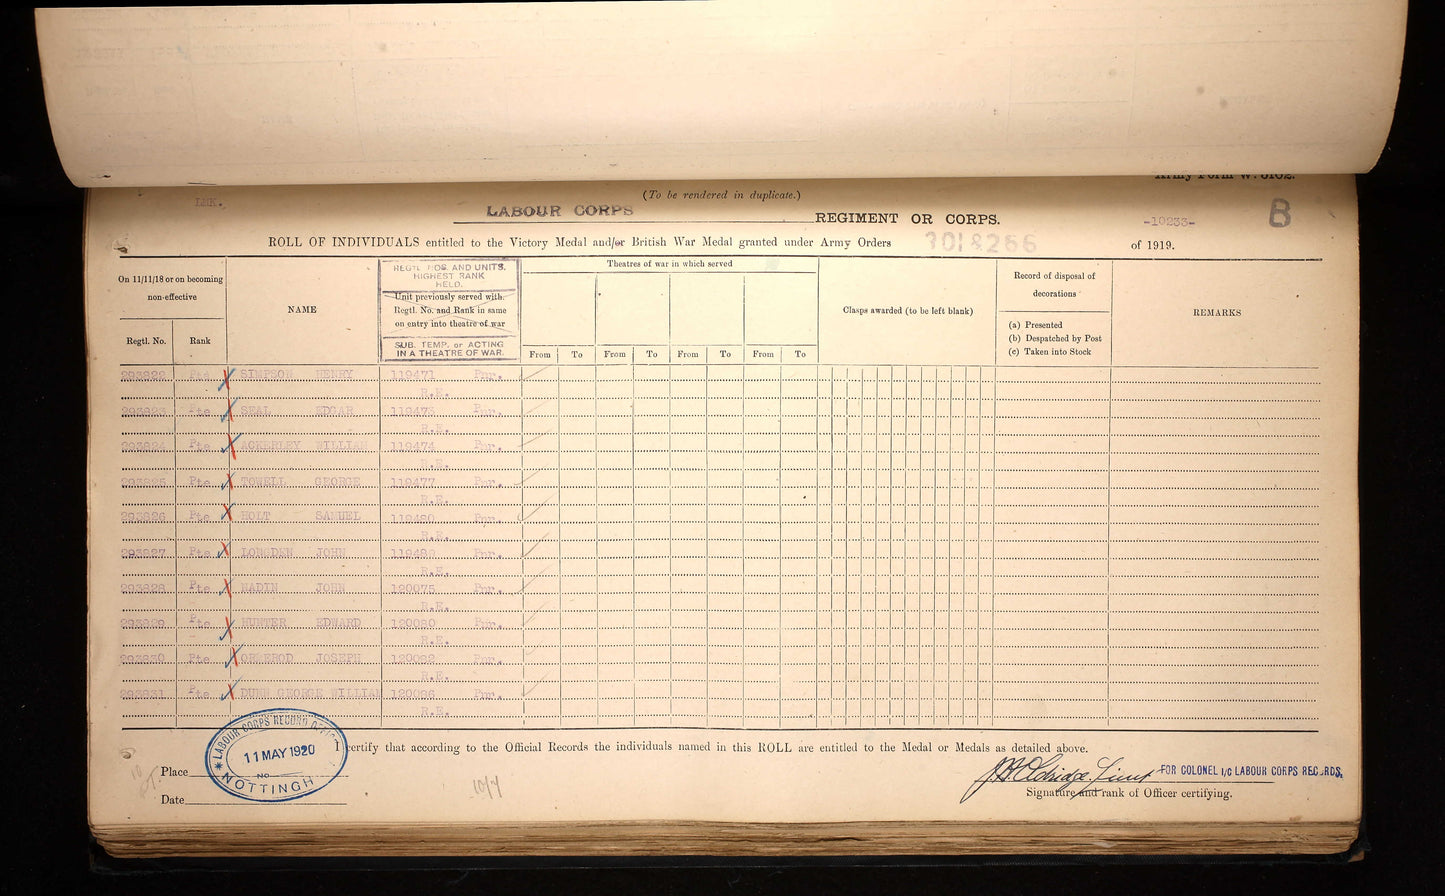 Army Form W. 5102.
(To be rendered in duplicate.)
LABOUR CORPS REGIMENT OR CORPS. -10233- B
ROLL OF INDIVIDUALS entitled to the Victory Medal and/or British War Medal granted under Army Orders 301 & 266 of 1919.
On 11/11/18 or on becoming non-effective
Regtl. No. Rank
NAME
REGTL NOS. AND UNITS. HIGHEST RANK HELD.
Unit previously served with. Regtl. No. and Rank in same on entry into theatre of war
SUB. TEMP. or ACTING IN A THEATRE OF WAR.
Theatres of war in which served
From To From To From To From To
Clasps awarded (to be left blank)
Record of disposal of decorations
(a) Presented
(b) Despatched by Post
(c) Taken into Stock
REMARKS
293822 Pte SIMPSON HENRY 119471 Pnr.
R.E.
293823 Pte SEAL EDGAR 119473 Pnr.
R.E.
293824 Pte ACKERLEY WILLIAM 119474 Pnr.
R.E.
293825 Pte TOWELL GEORGE 119477 Pnr.
R.E.
293826 Pte HOLT SAMUEL 119480 Pnr.
R.E.
293827 Pte LOWNDEN JOHN Pnr.
R.E.
293828 Pte NADIN JOHN 120075 Pnr.
R.E.
293829 Pte HUNTER EDWARD 120080 Pnr.
R.E.
293830 Pte ORMEROD JOSEPH Pnr.
R.E.
293831 Pte DUNN GEORGE WILLIAM 120086 Pnr.
R.E.
certify that according to the Official Records the individuals named in this ROLL are entitled to the Medal or Medals as detailed above.
LABOUR CORPS RECORD OFFICE
11 MAY 1920
No
NOTTINGH
Place
Date
10/4
J. W. Aldridge. Lieut FOR COLONEL I/C LABOUR CORPS RECORDS.
Signature and rank of Officer certifying.